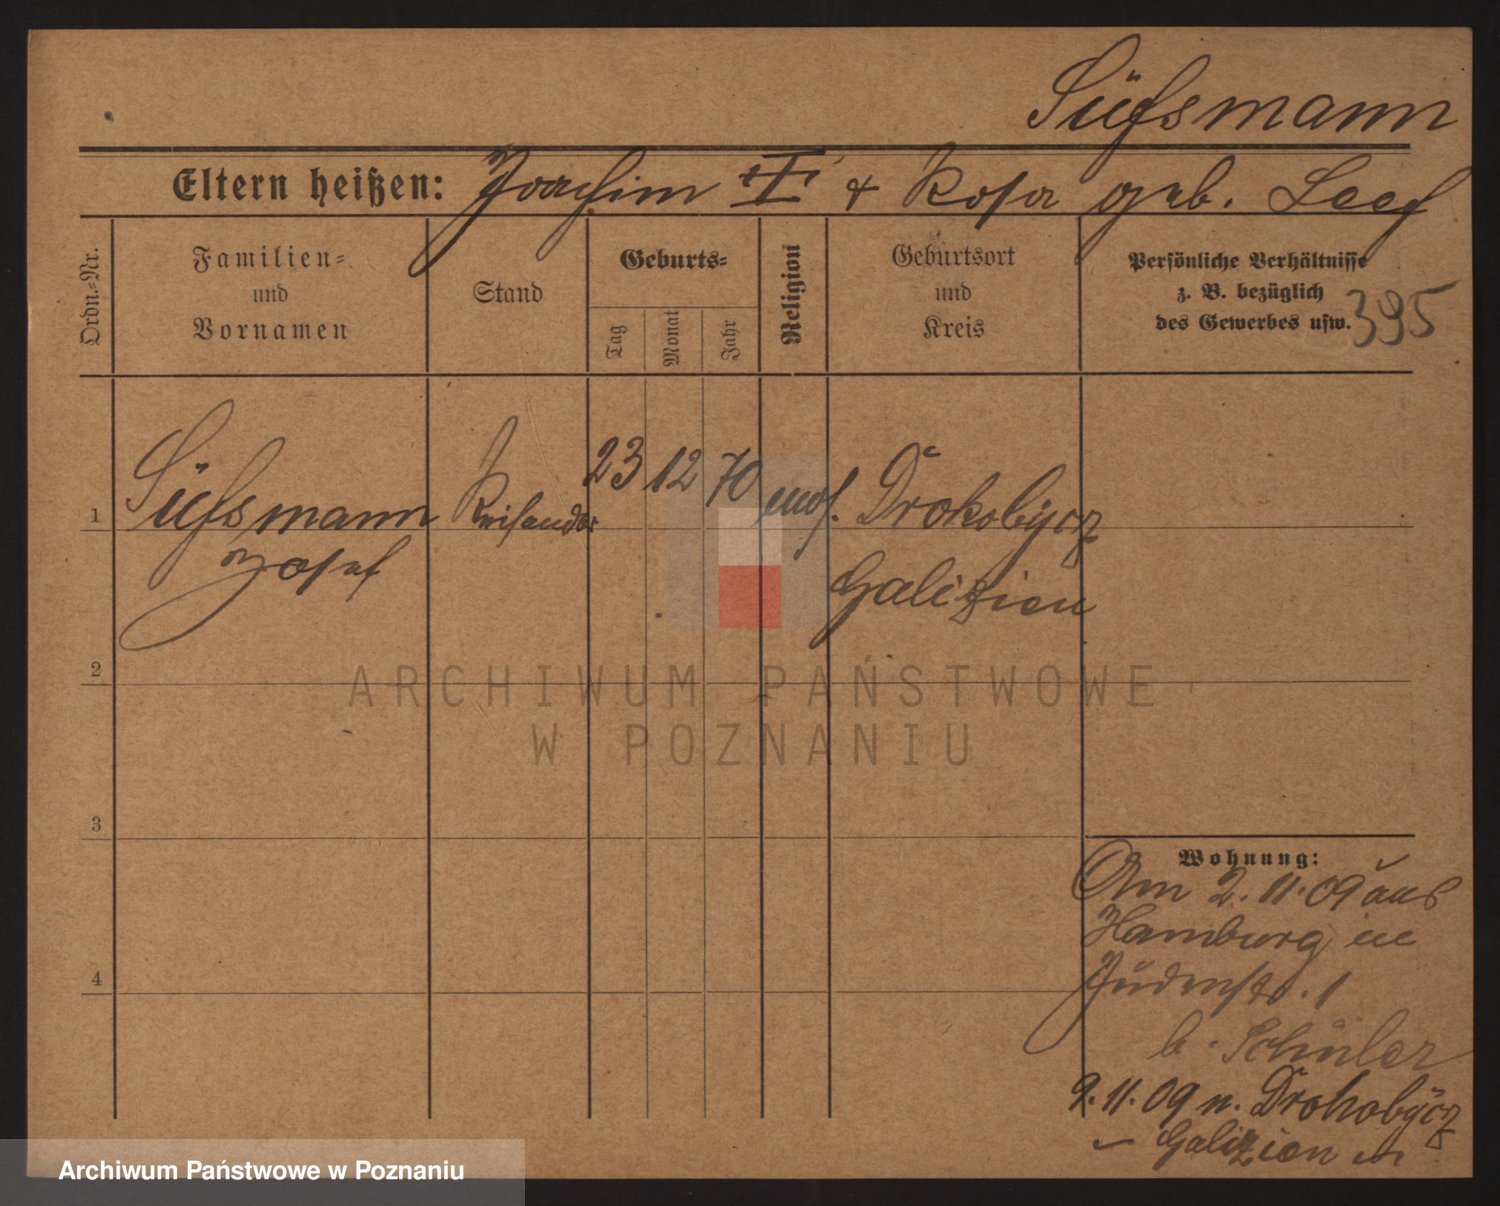 Süßsmann
Eltern heißen: Joachim & Rosa geb.
Ordn.-Nr.
Familien-
und
Vornamen
Stand
Geburts-
Tag
Monat
Jahr
Religion
Geburtsort
und
Kreis
Persönliche Verhältnisse
z. B. bezüglich
des Gewerbes usw.
395
1
Süßsmann
Josef
Reisender
23 12 70
mos.
Drohobycz
Galizien
2
3
4
Wohnung:
Am 2.11.09 aus
Hamburg in
Judenstr. 1
b. Schüler
2.11.09 n. Drohobycz
Galizien
ARCHIWUM PAŃSTWOWE
W POZNANIU
Archiwum Państwowe w Poznaniu